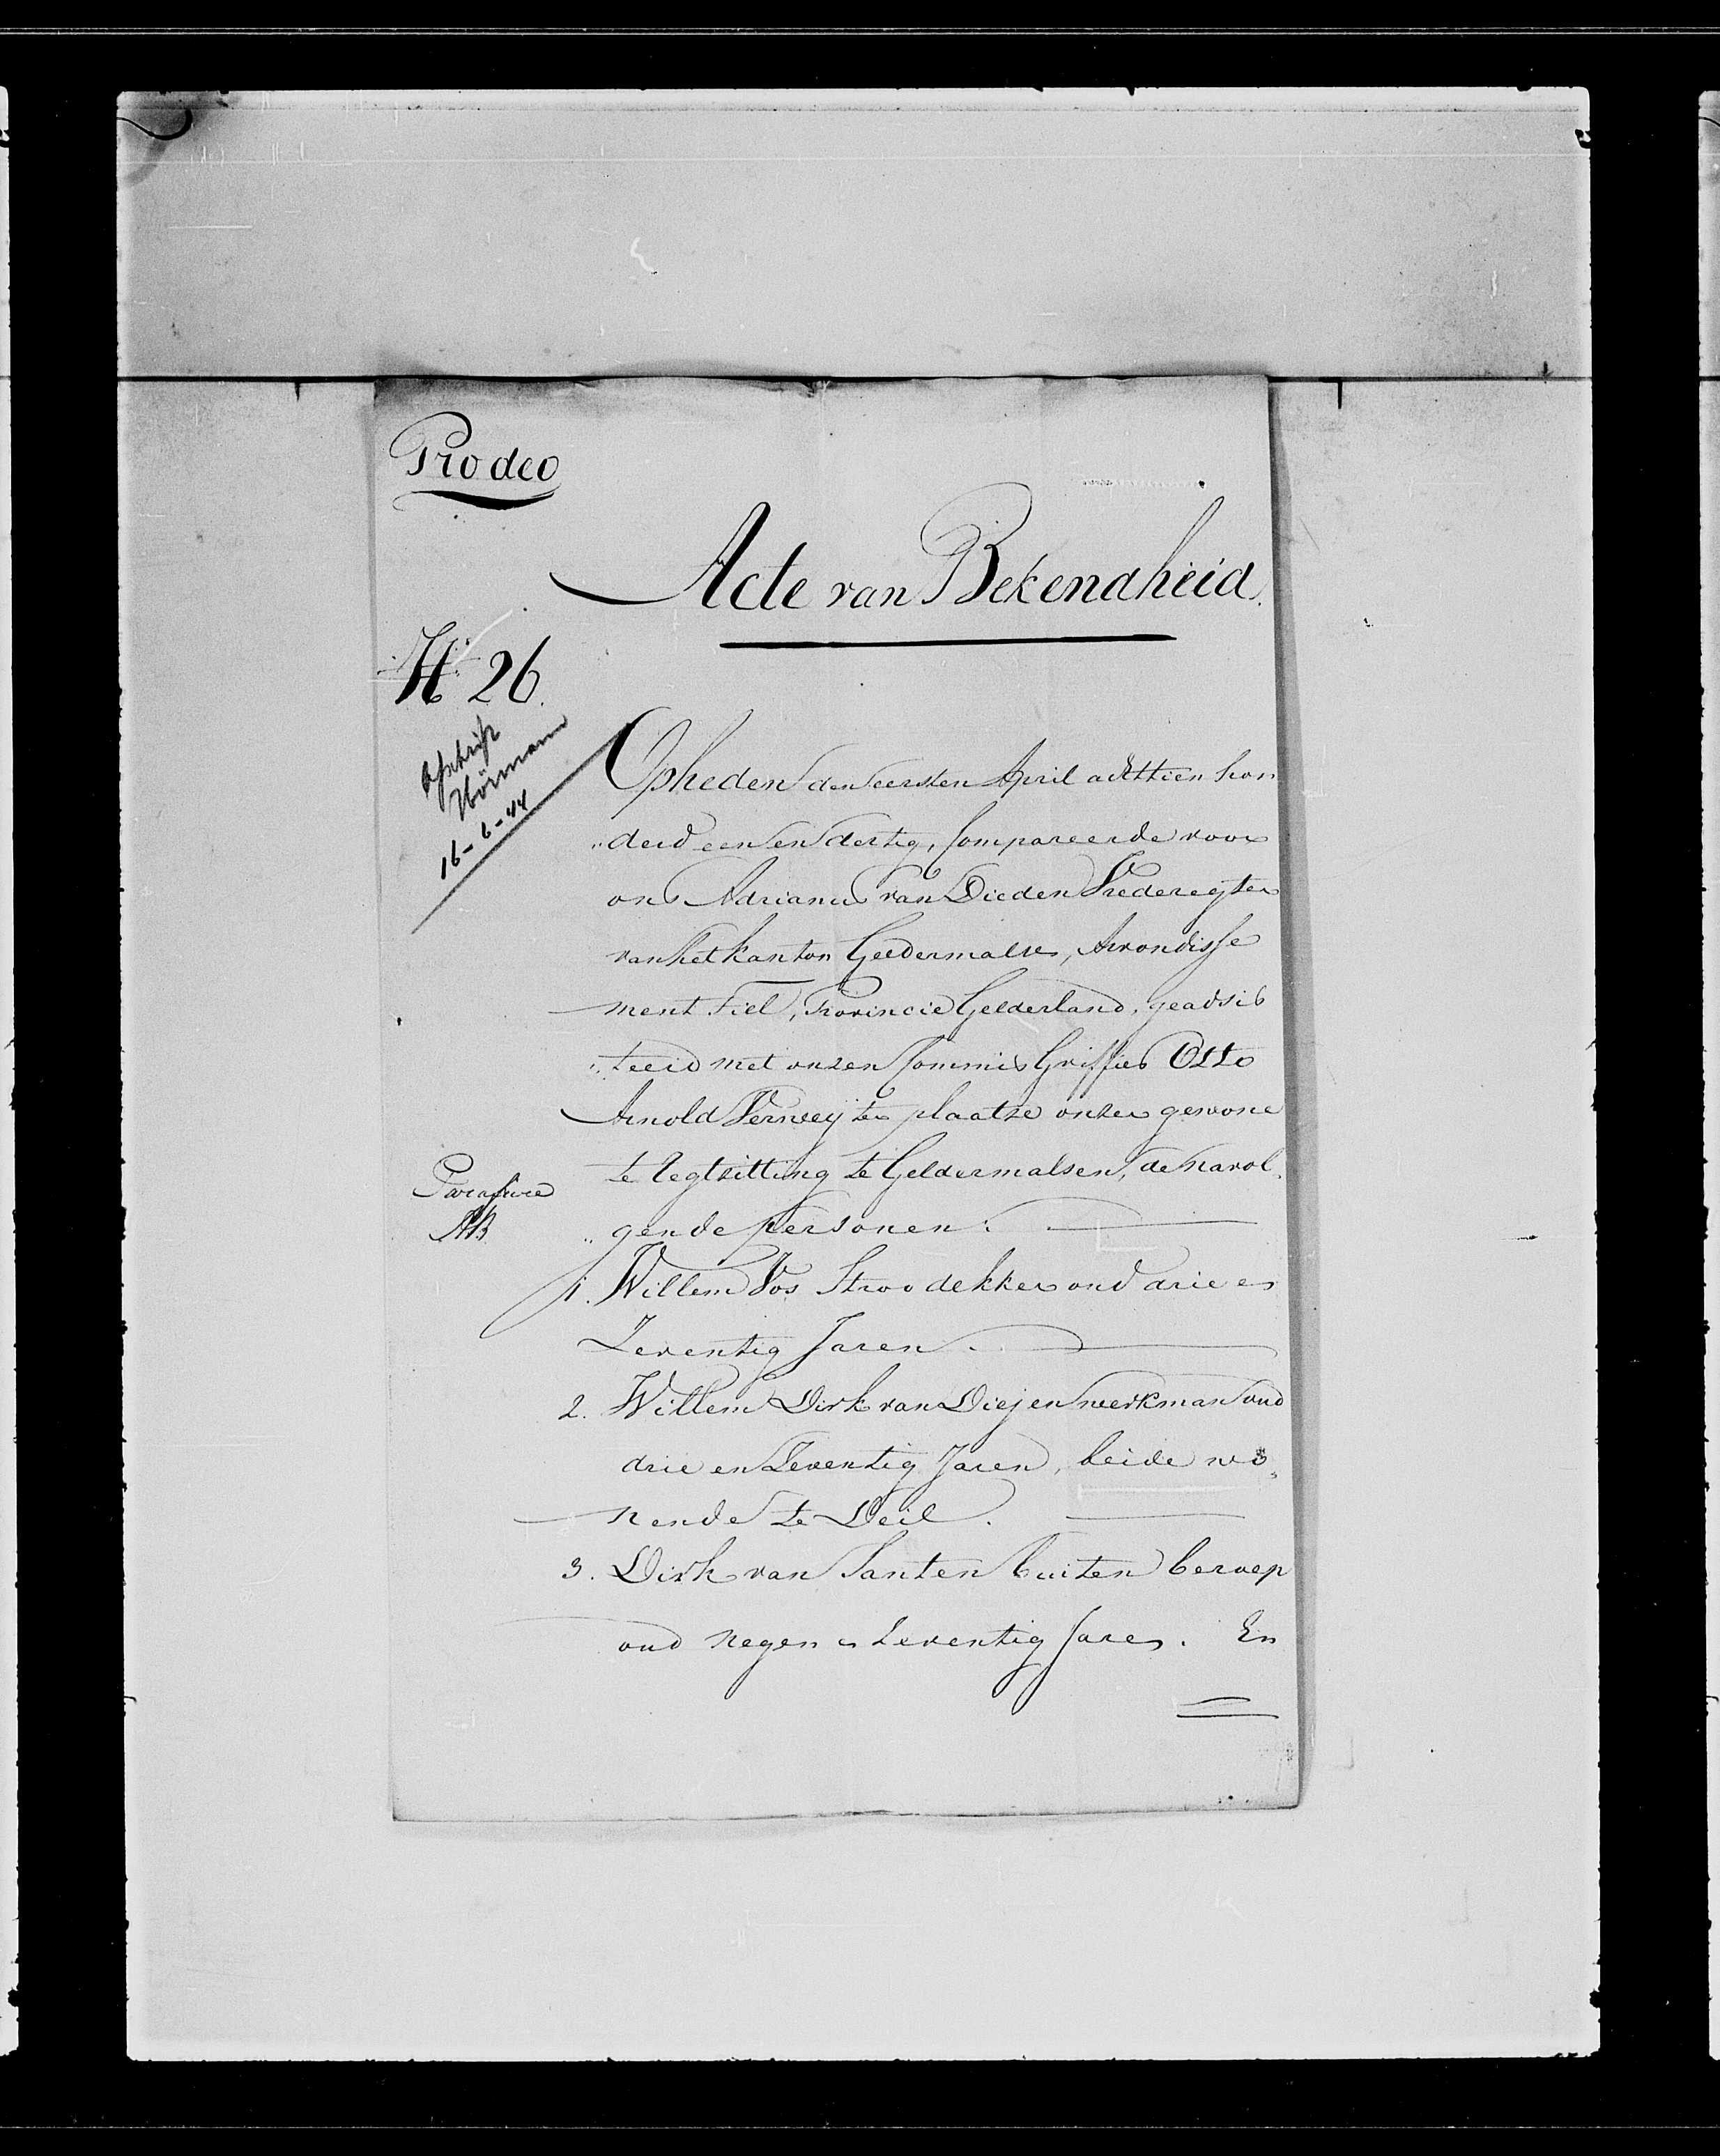 Pro deo
Acte van Bekendheid.
N.º 26.
Afschrift
Hörmann
16-6-44
Op heden den eersten April achttien hon
"derd een en dertig, Compareerde voor
ons Adrianus van Dieden Vrederegter
van het kanton Geldermalsen, Arrondisse
ment Tiel, Provincie Gelderland, geadsis
"teerd met onzen Commis Griffier Otto
Arnold Verweij ter plaatse onzer gewone
te regtzitting te Geldermalsen, de navol
"gende personen.
Parafure
AB
1. Willem Vos Stroodekker oud drie en
Zeventig Jaren.
2. Willem Dirk van Diejen werkman oud
drie en Zeventig Jaren, beide wo
nende te Deil.
3. Dirk van Santen buiten beroep
oud negen en Zeventig Jaren. En